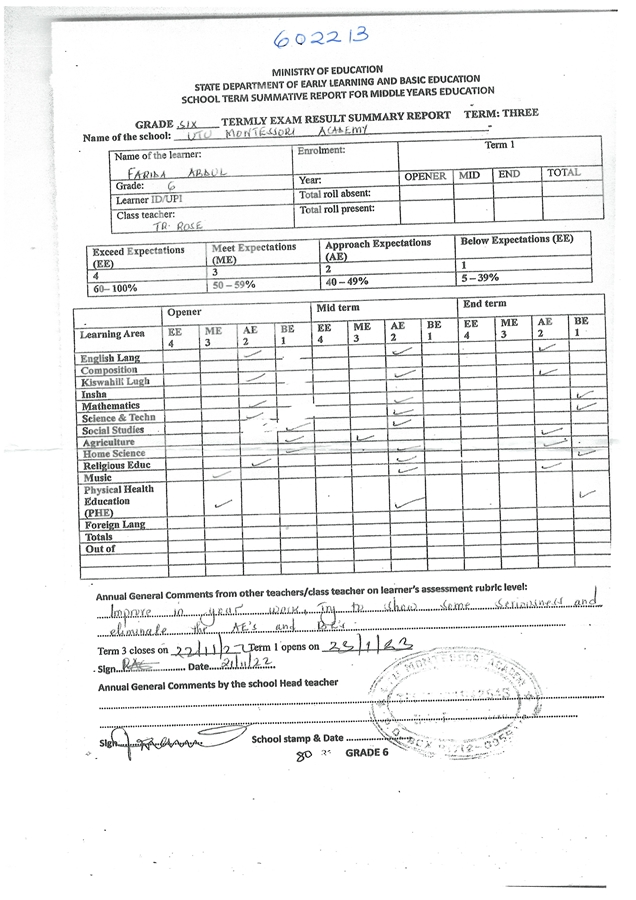 602213
MINISTRY OF EDUCATION
STATE DEPARTMENT OF EARLY LEARNING AND BASIC EDUCATION
SCHOOL TERM SUMMATIVE REPORT FOR MIDDLE YEARS EDUCATION
GRADE SIX TERMLY EXAM RESULT SUMMARY REPORT TERM: THREE
Name of the school: UTU MONTESSORI ACADEMY
Name of the learner: Enrolment: Term 1
FARIDA ABDUL
Grade: 6 Year: OPENER MID END TOTAL
Learner ID/UPI Total roll absent:
Class teacher: Total roll present:
TR. ROSE
Exceed Expectations (EE) Meet Expectations (ME) Approach Expectations (AE) Below Expectations (EE)
4 3 2 1
60–100% 50–59% 40–49% 5–39%
Opener Mid term End term
Learning Area EE 4 ME 3 AE 2 BE 1 EE 4 ME 3 AE 2 BE 1 EE 4 ME 3 AE 2 BE 1
English Lang ✓ ✓ ✓
Composition
Kiswahili Lugh ✓ ✓ ✓
Insha ✓
Mathematics ✓ ✓ ✓
Science & Techn ✓ ✓
Social Studies ✓ ✓
Agriculture ✓ ✓ ✓
Home Science ✓ ✓
Religious Educ ✓ ✓ ✓
Music ✓
Physical Health
Education ✓ ✓ ✓
(PHE)
Foreign Lang
Totals
Out of
Annual General Comments from other teachers/class teacher on learner's assessment rubric level:
Improve in year work, Try to show some seriousness and
eliminate the AE's and BE's
Term 3 closes on 22/11/22 Term 1 opens on 23/1/23
Sign Date 21/11/22
Annual General Comments by the school Head teacher
Sign School stamp & Date
80 GRADE 6